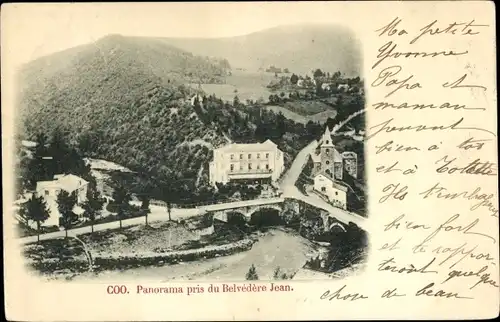 Ma petite
Yvonne
Papa et
maman
pensent
bien à toi
et à Totolle
Ils t'embrassent
bien fort
et te rappor
teront quelque
chose de beau
COO. Panorama pris du Belvédère Jean.